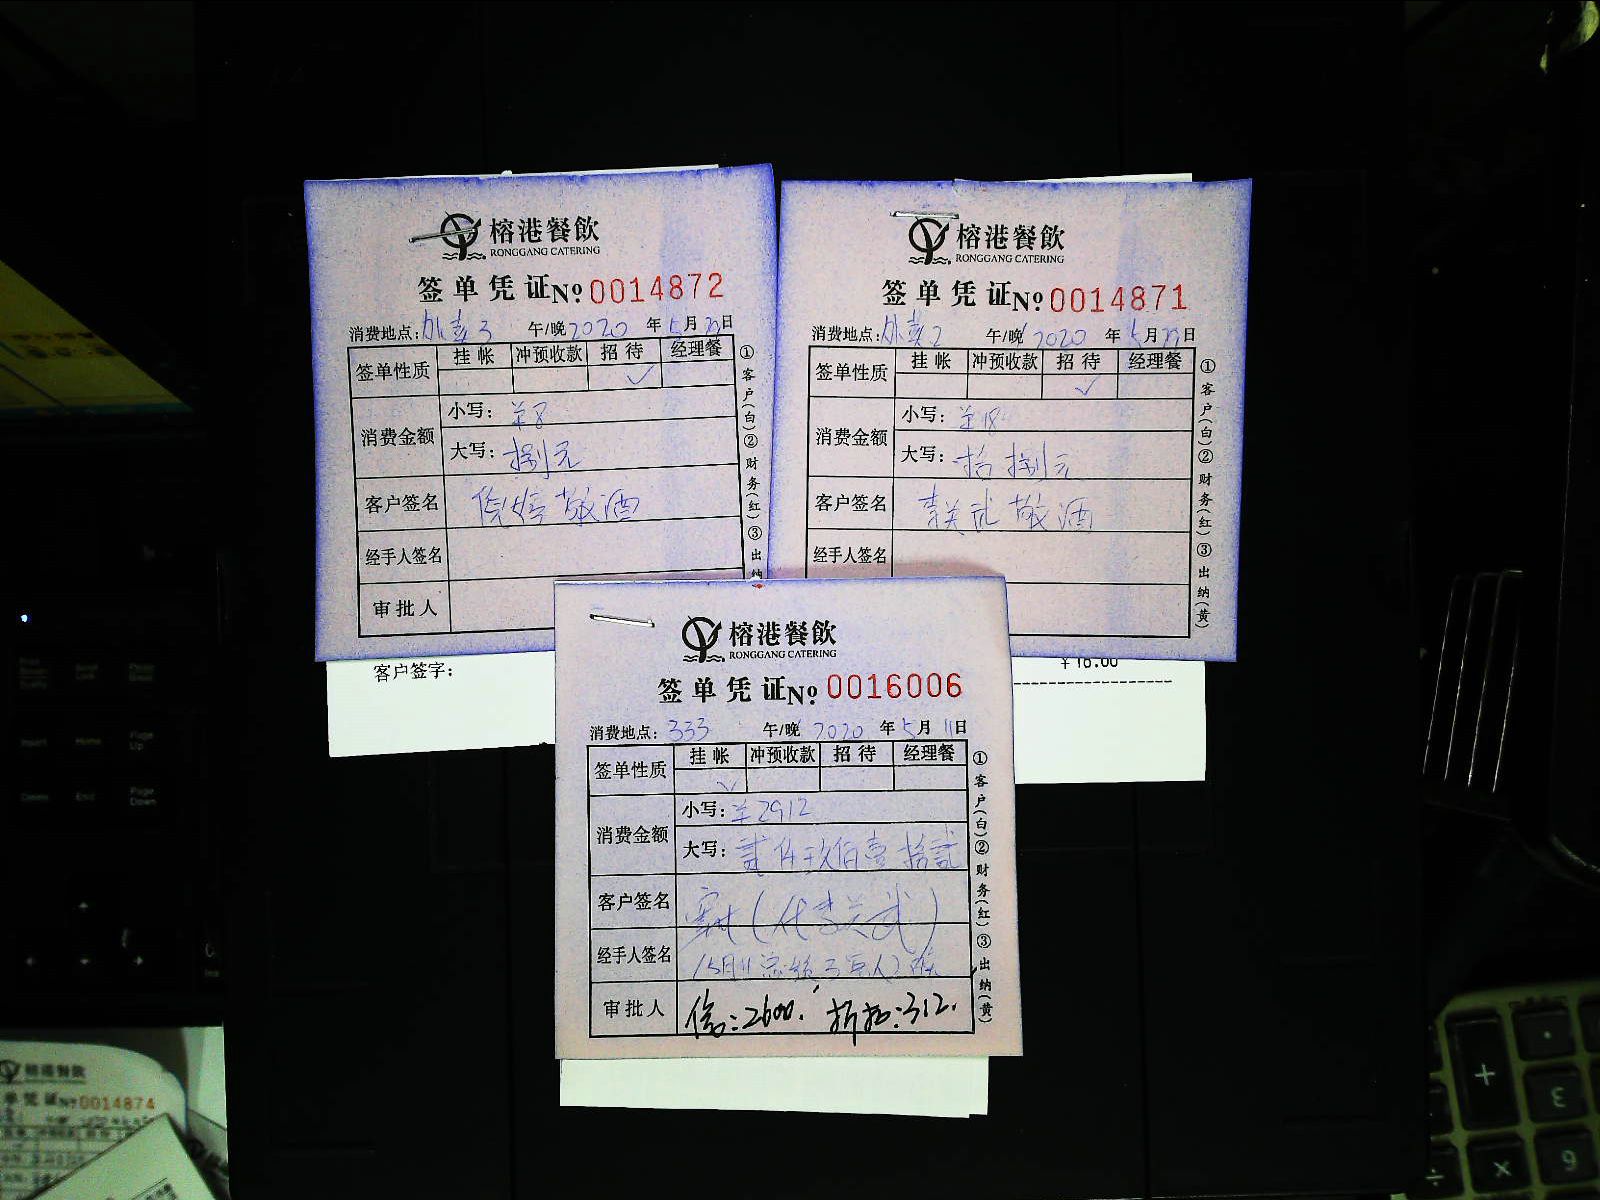 榕港餐飲
RONGGANG CATERING
签单凭证No.0014872
消费地点:外卖3 午/晚2020年5月29日
签单性质 挂帐 冲预收款 招待 经理餐
✓
消费金额 小写:¥8
大写:捌元
客户签名 倪婷敬酒
经手人签名
审批人
①客户(白)②财务(红)③出纳
客户签字:
榕港餐飲
RONGGANG CATERING
签单凭证No.0014871
消费地点:外卖2 午/晚2020年5月29日
签单性质 挂帐 冲预收款 招待 经理餐
✓
消费金额 小写:¥18
大写:拾捌元
客户签名 李关武敬酒
经手人签名
①客户(白)②财务(红)③出纳(黄)
¥18.00
榕港餐飲
RONGGANG CATERING
签单凭证No.0016006
消费地点:333 午/晚2020年5月11日
签单性质 挂帐 冲预收款 招待 经理餐
✓
消费金额 小写:¥2912
大写:贰仟玖佰壹拾贰
客户签名 (代李关武)
经手人签名
审批人 :2600. 折扣:312.
①客户(白)②财务(红)③出纳(黄)
榕港餐飲
单凭证No.0014874
Insert Home Page Up
Delete End Page Down
+ 3
÷ × 6